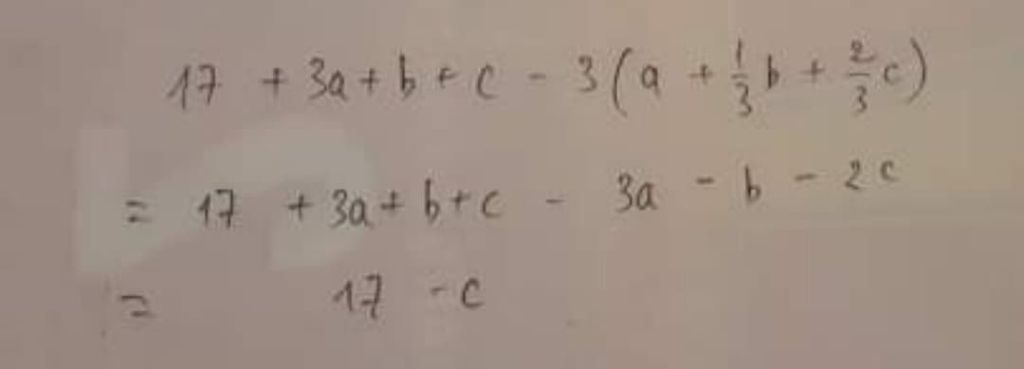 17 + 3a + b + c - 3(a + 1/3 b + 2/3 c)
= 17 + 3a + b + c - 3a - b - 2c
= 17 - c